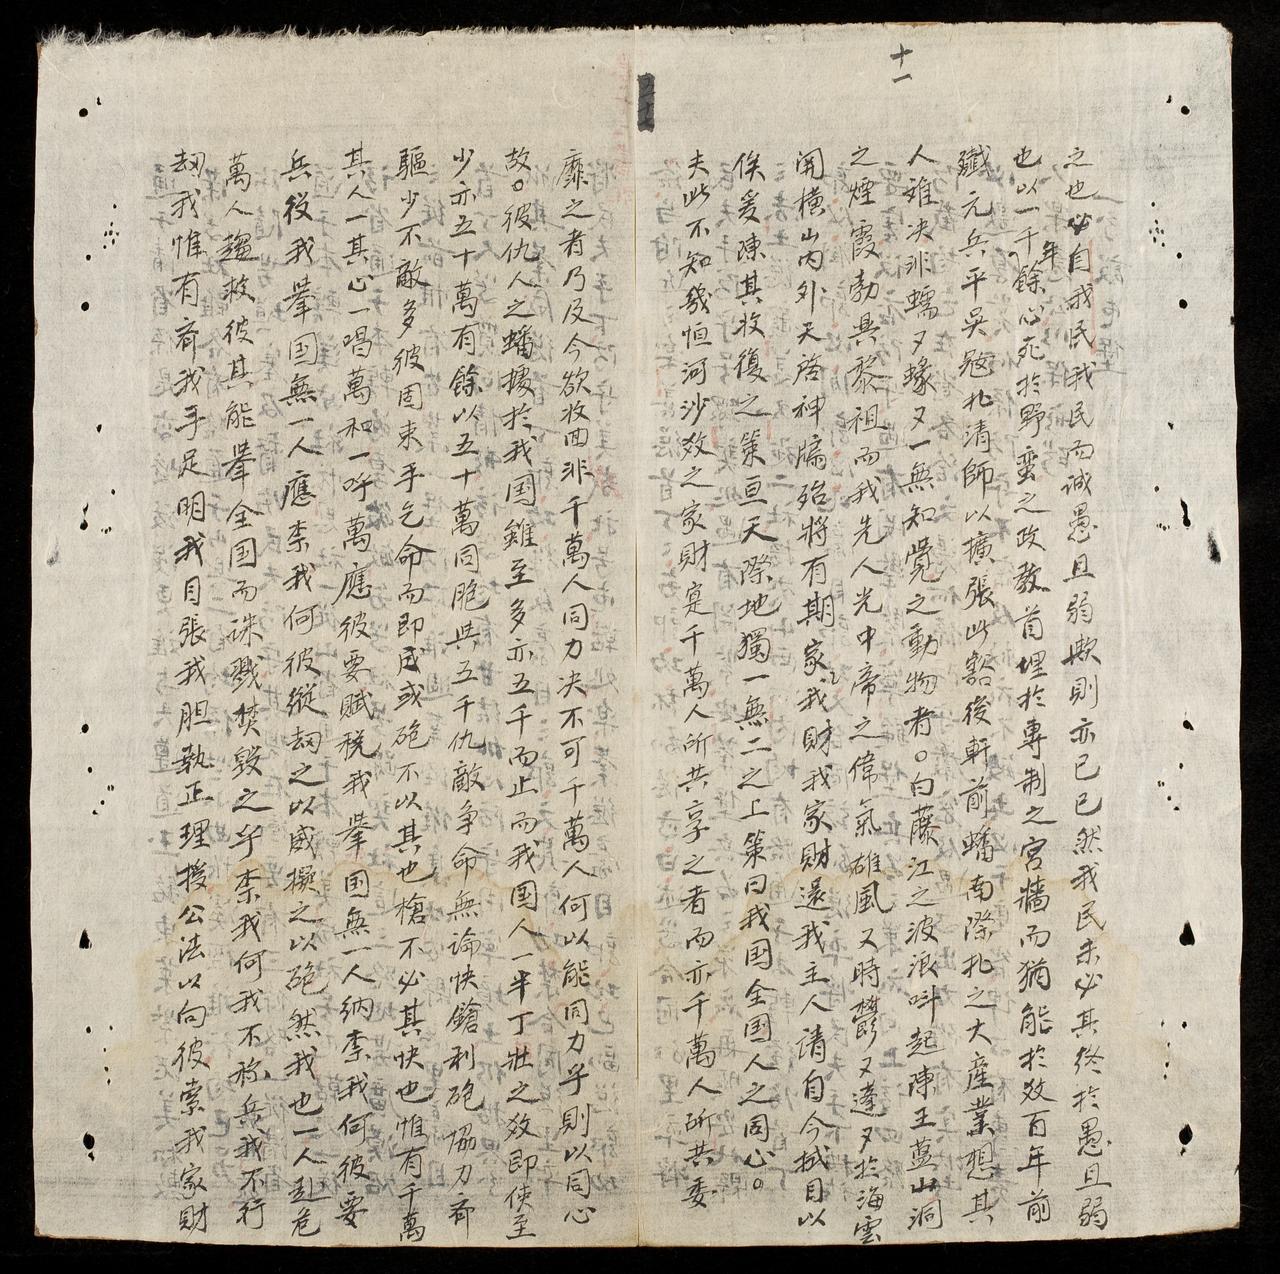 十一
之也必自我民我民而誠愚且弱欺則亦已已然我民未必其終於愚且弱
也以一千年餘心死於野蛮之政教首埋於專制之宮牆而猶能於效百年前
殲元兵平吳寇北清師以擴張此豁後軒前蟠南際北之大產業想其
人雖决非蠕々蠓々一無知覺之動物者。白藤江之波浪叫起陳王藍山洞
之煙霞勃興黎祖而我先人光中帝之偉氣雄風又時欝々達々於海雲
開橫山內外天啓神牖殆將有期家々我財我家財還我主人請自今拭目以
俟爰陳其收復之策亘天際地獨一無二之上策曰我国全国人之同心。
夫此不知幾恒河沙效之家財寔千萬人所共享之者而亦千萬人所共委
靡之者乃及今欲收回非千萬人同力决不可千萬人何以能同力乎則以同心
故。彼仇人之蟠擾於我国雖至多亦五千而止而我国人一半丁壯之效即使至
少亦五十萬有餘以五十萬同胞與五千仇敵争命無論快鎗利砲協力齐
驅少不敵多彼固束手乞命而即或砲不以其也槍不必其快也惟有千萬
其人一其心一唱萬和一呼萬應彼要賦稅我舉国無一人納柰我何彼要
兵役我舉国無一人應柰我何彼縱刼之以威擬之以砲然我也一人赴危
萬人趨救彼其能舉全国而誅戮焚毀之乎柰我何我不称兵我不行
刼我惟有齐我手足明我目張我胆執正理援公法以向彼索我家財